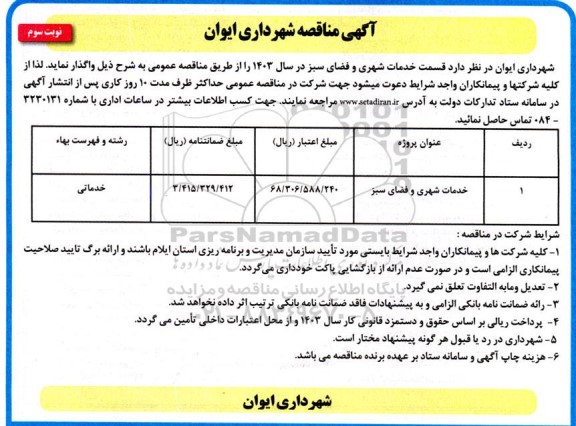 آگهی مناقصه شهرداری ایوان
نوبت سوم
شهرداری ایوان در نظر دارد قسمت خدمات شهری و فضای سبز در سال ۱۴۰۳ را از طریق مناقصه عمومی به شرح ذیل واگذار نماید. لذا از
کلیه شرکتها و پیمانکاران واجد شرایط دعوت میشود جهت شرکت در مناقصه عمومی حداکثر ظرف مدت ۱۰ روز کاری پس از انتشار آگهی
در سامانه ستاد تدارکات دولت به آدرس www.setadiran.ir مراجعه نمایند. جهت کسب اطلاعات بیشتر در ساعات اداری با شماره ۳۲۳۰۱۳۱
- ۰۸۴ تماس حاصل نمائید.
ردیف عنوان پروژه مبلغ اعتبار (ریال) مبلغ ضمانتنامه (ریال) رشته و فهرست بهاء
۱ خدمات شهری و فضای سبز ۶۸/۳۰۶/۵۸۸/۲۴۰ ۳/۴۱۵/۳۲۹/۴۱۲ خدماتی
شرایط شرکت در مناقصه :
۱- کلیه شرکت ها و پیمانکاران واجد شرایط بایستی مورد تأیید سازمان مدیریت و برنامه ریزی استان ایلام باشند و ارائه برگ تایید صلاحیت
پیمانکاری الزامی است و در صورت عدم ارائه از بازگشایی پاکت خودداری می‌گردد.
۲- تعدیل ومابه التفاوت تعلق نمی گیرد.
۳- رائه ضمانت نامه بانکی الزامی و به پیشنهادات فاقد ضمانت نامه بانکی ترتیب اثر داده نخواهد شد.
۴- پرداخت ریالی بر اساس حقوق و دستمزد قانونی کار سال ۱۴۰۳ و از محل اعتبارات داخلی تأمین می گردد.
۵- شهرداری در رد یا قبول هر گونه پیشنهاد مختار است.
۶- هزینه چاپ آگهی و سامانه ستاد بر عهده برنده مناقصه می باشد.
شهرداری ایوان
ParsNamadData
پایگاه اطلاع رسانی مناقصه و مزایده